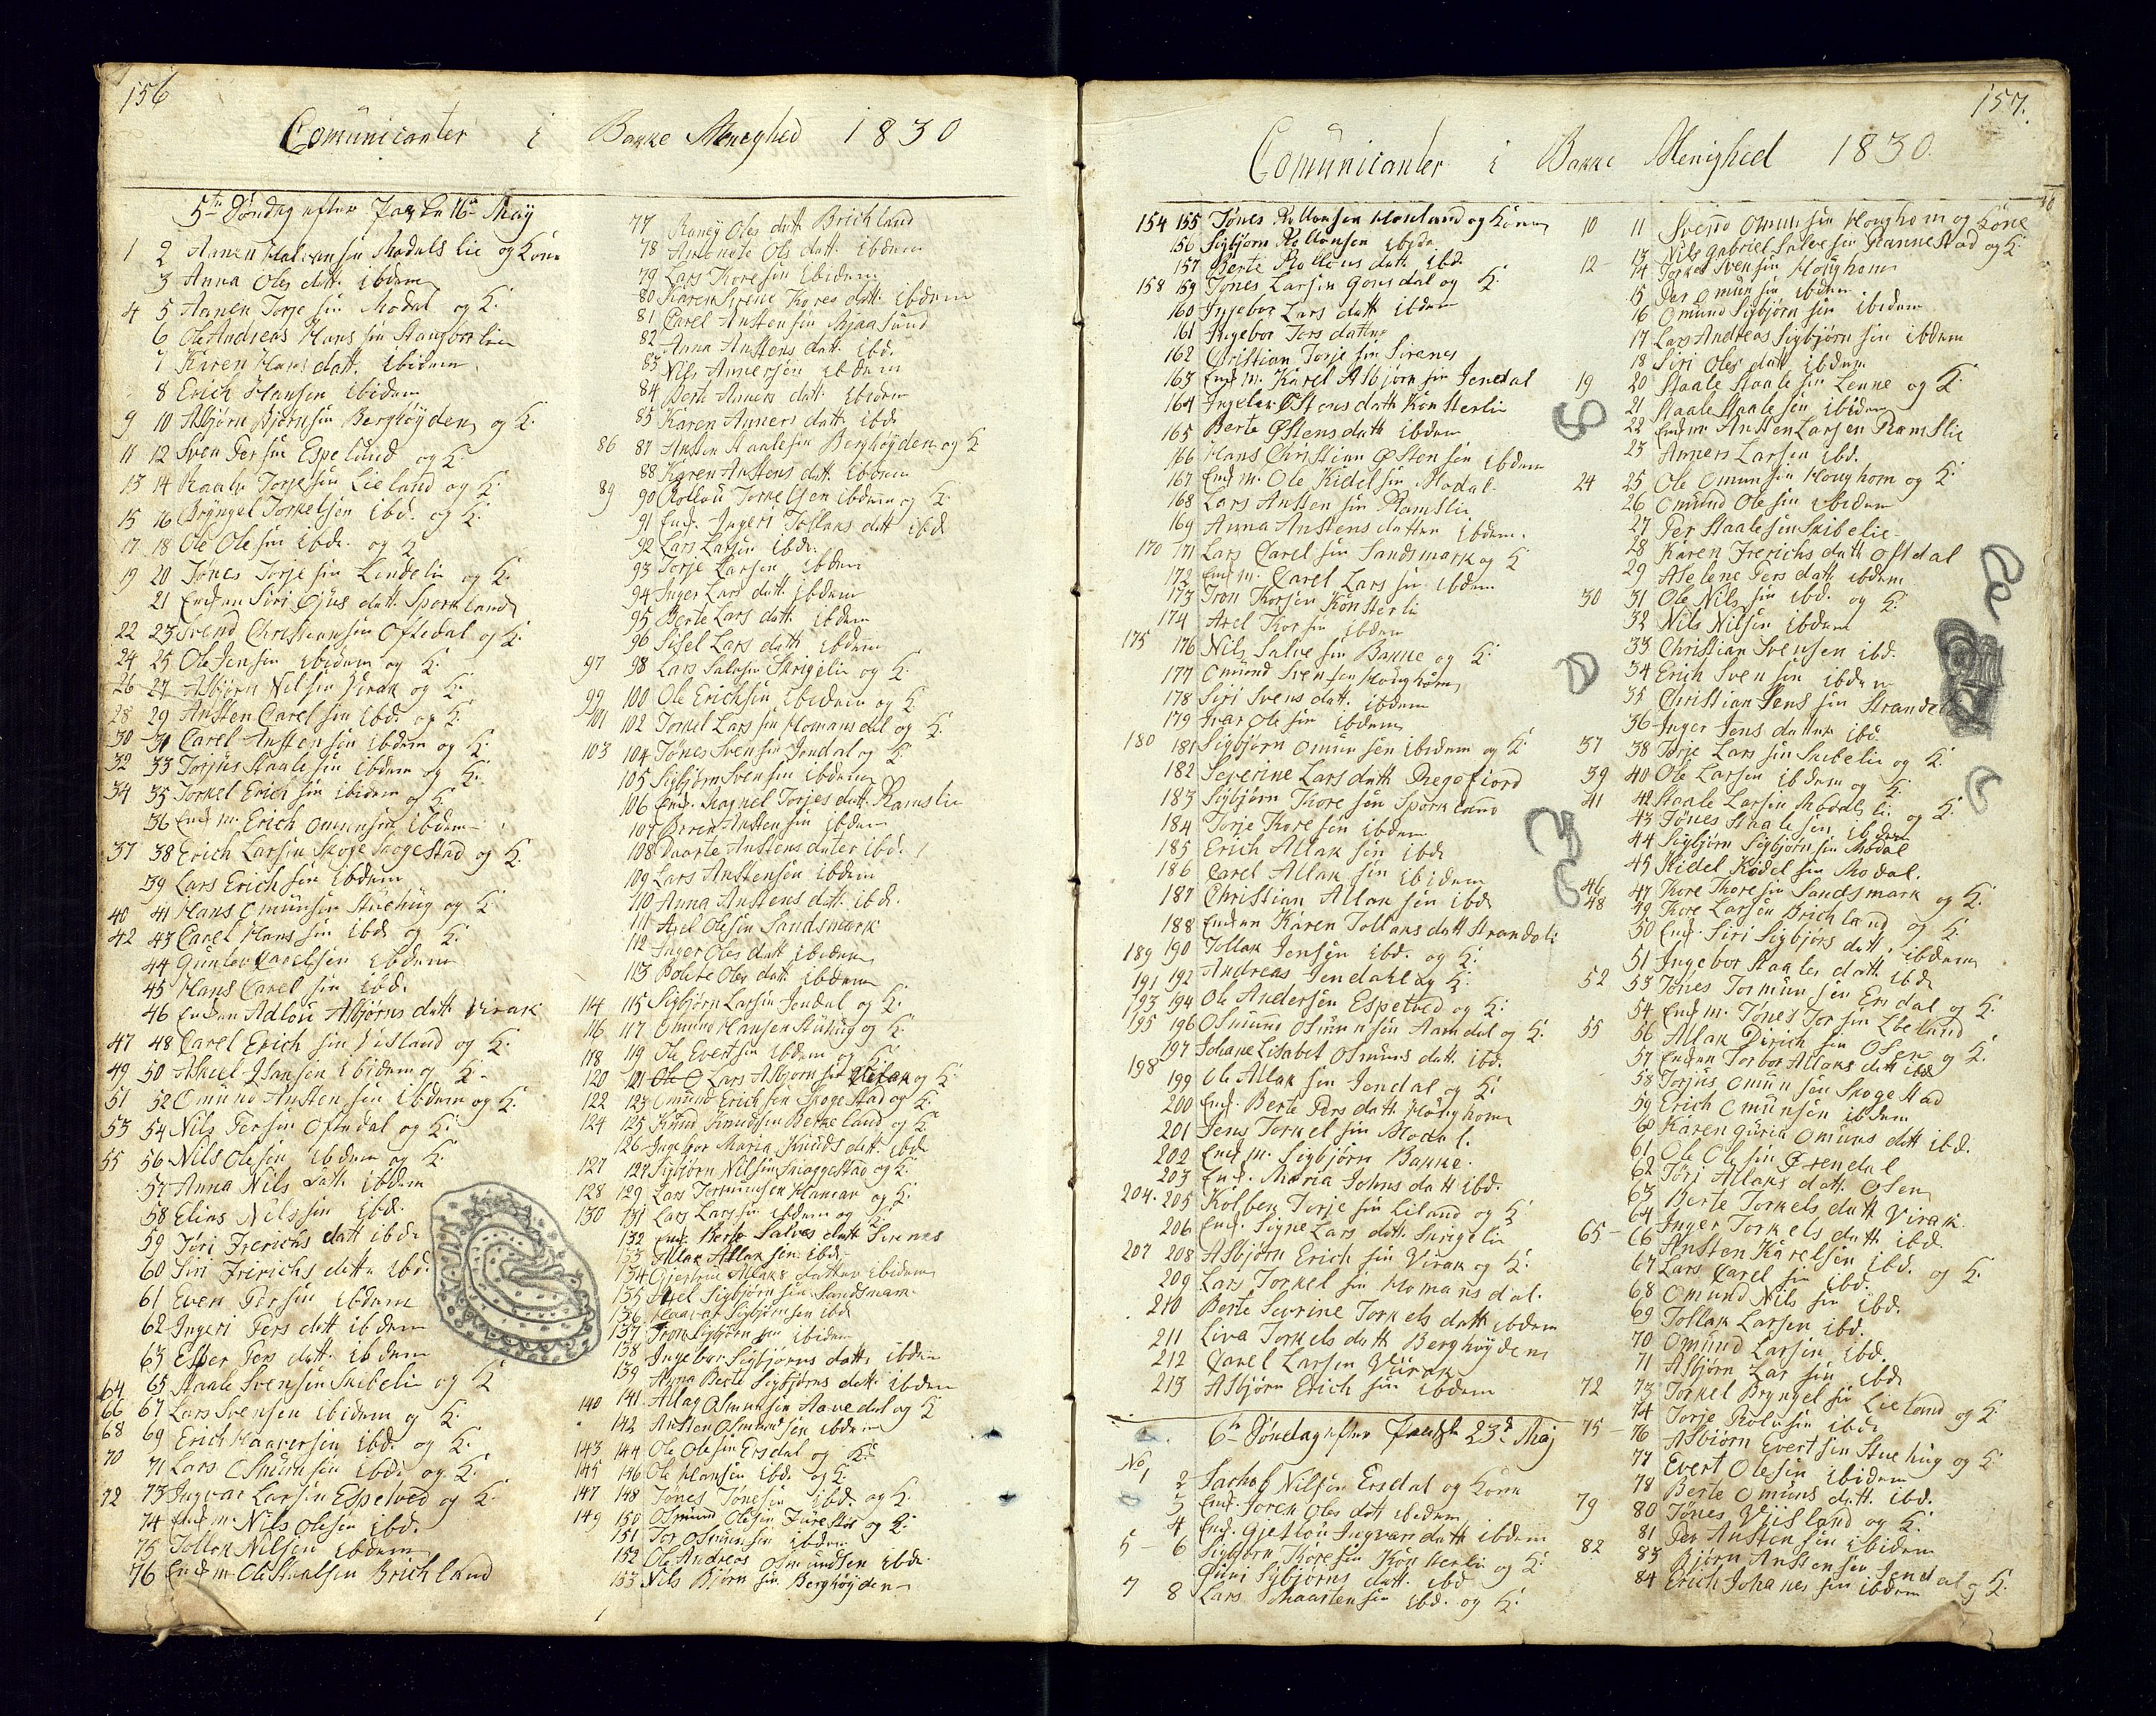 156
Comünicanter i Bakke Meneghed 1830
5te Söndag efter Paaske 16de Maÿ
1 2 Hansen Modals lie og Kone
3 Anna Oles datt. ibdem
4 5 Aanen Torje sin Modal og K:
6 Ole Andreas Hans sin
7 Karen Hans datt. ibidem
8 Erich Hansen ibidem
9 10 Asbjørn Bjørnsin Berghöÿden og K:
11 12 Sven Per sin Espelund og K:
13 14 Torjesin Lieland og K:
15 16 Brÿngel Torkelsen ibd. og K:
17 18 Ole Ole sin ibde. og
19 20 Tönes Torje sin Lindelie og K:
21 Enken Siri datt. Sporkland
22 23 Svend Christiansin Oftedal og K:
24 25 Ole Jensin ibidem og K:
26 27 Asbjørn Nilsin Virak og K:
28 29 Ansten Carel sin ibd. og K:
30 31 Carel Ansten sin ibdem og K:
32 33 Torjüs Staale sin ibdem og K:
34 35 Torkel Erich sin ibidem og K:
36 Enk m. Erich Omunsin ibdem
37 38 Erich Larsin Skogestad og K:
39 Lars Erich sin ibdem
40 41 Hans Omünsin Stuehüg og K:
42 43 Carel Hans sin ibd. og K:
44 Günlev Carelsen ibdem
45 Hans Carel sin ibd.
46 Enken Adlou Asbjørns datt. Virak
47 48 Carel Erich sin Viisland og K:
49 50 Hansen ibidem og K:
51 52 Omünd Ansten sin ibdem og K:
53 54 Nils Per sin Oftedal og K:
55 56 Nils Olesin ibdem og K:
57 Anna Nils datt. ibdem
58 Elias Nils sin ibd.
59 Töri Frerichs datt ibd.
60 Siri Fririchs datt. ibd.
61 Even Per sin ibdem
62 Ingeri Pers datt ibdem
63 Esper Pers datt. ibdem
64 65 Staale Svensin Skibelie og K:
66 67 Lars Svensen ibidem og K:
68 69 Erich Haaversin ibd. og K:
70 71 Lars Osmünsin ibd. og K:
72 73 Ingvar Larsin Espetved og K:
74 Enk m. Nils Olesin ibd.
75 Tollak Nilsin ibdem
76 Enk m. Ole Staalsin Brichland
77 Raneÿ Oles datt. Brichland
78 Ols datt. ibdem
79 Lars Koresin ibidem
80 Karen Sirene Kores datt. ibdem
81 Carel Ansten sin Bjaasund
82 Anna Anstens datt. ibd.
83 Nils Annersen ibdem
84 Berte Anners datt. ibdem
85 Karen Anners datt. ibd.
86 87 Ansten Staalesin Berghöÿden og K
88 Karen Anstens datt. ibdem
89 90 Torkelsen ibdem og K:
91 Enk. Ingeri Tollaks datt ibd
92 Lars Larsin ibd.
93 Torje Larsen ibdem
94 Inger Lars datt. ibdem
95 Berte Lars datt. ibdem
96 Sisel Lars datt. ibdem
97 98 Lars Salvsin Skrigelie og K:
99 100 Ole Ericksin ibidem og K
101 102 Torkel Lars sin Homansdal og K:
103 104 Tönes Svensin Jendal og K:
105 Sigbjørn Svensin ibdem
106 Enk. Magnel Torjes datt. Ramslie
107 Beren Ansten sin ibdem
108 Anstens dater ibd.
109 Lars Anstensen ibdem
110 Anna Anstens datt. ibd.
111 Axel Olesin Sandsmark
112 Inger Oles datt ibidem
113 Bolete Oles datt. ibdem
114 115 Sigbjørn Larsin Jendal og K:
116 117 Omund Hansen Stuhug og K:
118 119 Ole Evertsin ibdem og K:
120 121 Lars Asbjørn sin Virak og K:
122 123 Omünd Erich sin Skogestad og K:
124 125 Knüd Knudsen Berkeland og K
126 Ingebor Maria Knüds datt. ibd
127 127 Sigbjørn Nilsin Skiaggestad og K:
128 129 Lars Tormunsen Hamran og K:
130 131 Lars Larssin ibdem og K:
132 Enk. Berte Salves datt. Sirenes
133 Allak Allak sin ibd.
134 Gjertrue Allaks datter ibidem
135 Axel Sigbjørnsin Sandsmark
136 Haavar Sigbjørnsen ibd
137 Tron Sigbjørn sin ibidem
138 Ingebor Sigbjørns datt. ibdem
139 Anna Berte Sigbjørns datt. ibdem
140 141 Allag Osmunsin Aamdal og K
142 Ansten Osmundsin ibdem
143 144 Ole Olesin Ersdal og K:
145 146 Ole Hansin ibd. og K:
147 148 Tönes Tönesin ibd. og K:
149 150 Osmund Olesin og K:
151 Tor Osmünsin ibdem
152 Ole Andreas Osmundsen ibd.
153 Nils Bjørn sin Berghöÿden
157.
Comünicanter i Bakke Menighed 1830.
154 155 Tönes Rollausen Houland og Kone
156 Sigbjørn Rollausen ibd
157 Berte Rollaus datt. ibd
158 159 Tönes Larsin Gonsdal og K:
160 Ingebor Lars datt ibdem
161 Ingebor Tors datter
162 Christian Torje sin Sirenes
163 Enk m. Karel Asbjørn sin Jendal
164 Østens datt. Könsterlie
165 Berte Østens datt ibdem
166 Hans Christian Østen sin ibdem
167 Enk m. Ole Kidel sin Modal
168 Lars Ansten sin Ramslie
169 Anna Anstens datter ibdem.
170 171 Lars Carel sin Sandsmark og K
172 Enk m. Carel Lars sin ibdem
173 Tron Korsen Könsterli
174 Axel Kor sin ibdem
175 176 Nils Salve sin Bakke og K:
177 Omünd Svensen Houghom
178 Siri Svens datt. ibdem
179 Ivar Ole sin ibdem
180 181 Sigbjørn Omunsen ibidem og K:
182 Severine Lars datt. Regefiord
183 Sigbjørn Kore sin Sporkland
184 Torje Kore sin ibdem
185 Erich Allak sin ibd
186 Carel Allak sin ibidem
187 Christian Allak sin ibd
188 Enken Karen Tollaks datt Strandeli
189 190 Tollak Jensin ibd. og K:
191 192 Andreas Jendahl og K:
193 194 Ole Andersen Espetved og K:
195 196 Osmund Osmunsin Aamdal og K:
197 Johane Lisabet Osmuns datt. ibd.
198 199 Ole Allak sin Jendal og K:
200 Enk. Berte Pers datt. Houghom
201 Jens Torkel sin Modal.
202 Enk m. Sigbjørn Bakke.
203 Enk. Maria Johns datt ibd.
204. 205 Kolben Torje sin Liland og K
206 Enk. Signe Lars datt. Skrigelie
207 208 Asbjørn Erich sin Virak og K:
209 Lars Torkel sin Homansdal.
210 Berte Sevrine Torkels datt ibdem
211 Liva Torkels datt Berghöÿden
212 Carel Larsen Virak
213 Asbjørn Erich sin ibdem
6te Söndag efter Paaske 23de Maj
No 1 2 Jachob Nilsen Ersdal og Kone
3 Enk. Joren Oles datt ibidem
4 Enk. Gjetlou Ingvars datt ibdem
5 6 Sigbjørn Koresin Könsterlie og K:
Guni Sigbjørns datt. ibd
7 8 Lars Maartensin ibd. og K:
10 11 Svend Omun sin Houghom og Kone
12 13 Nils Gabriel Salvesin Rannestad og K
14 Torkel Svensin Houghom
15 Per Omunsin ibdem
16 Omund Sigbjørn sin ibidem
17 Lars Andreas Sigbjørn sin ibdem
18 Siri Oles datt. ibdem
19 20 Staale Staale sin Leune og K:
21 Staale Staalesin ibidem
22 Enk m. Ansten Larsen Ramslie
23 Anners Larsin ibd.
24 25 Ole Omunsin Houghom og K:
26 Omünd Ole sin ibdem
27 Per Staalesin Skibelie
28 Karen Frerichs datt. Oftdal
29 Aselene Pers datt. ibdem
30 31 Ole Nils sin ibd. og K:
32 Nils Nilsin ibdem
33 Christian Svensen ibd.
34 Erich Svensin ibdem
35 Christian Jens sin
36 Inger Jens datter ibd
37 38 Torje Lars sin Skibelie og K:
39 40 Ole Larsen ibdem og K:
41 42 Staale Larsin Modals li og K:
43 Tönes Staale sin ibdem
44 Sigbjørn Sigbjørn sin Modal
45 Kidel Kidel sin Modal.
46 47 Kore Thoresin Sandsmark og K:
48 49 Kore Larsen Brichland og K:
50 Enk. Siri Sigbjørs datt. ibdem
51 Ingebor Staales datt. ibd
52 53 Tönes Tormun sin Ersdal og K:
54 Enk m. Tönes Tor sin
55 56 Allak Dirich sin Osen og K:
57 Enken Torbor Allaks datt ibd
58 Torjüs Omün sin Skogestad
59 Erich Omünsen ibdem
60 Karen Guria Omuns datt ibd.
61 Ole Ole sin
62 Töri Allaks datt. Osen
63 Berte Torkels datt Virak
64 Inger Torkels datt ibd.
65 66 Ansten Karelsin ibd. og K:
67 Lars Carel sin ibd.
68 Omund Nils sin ibd.
69 Tollak Larsen ibd.
70 Omünd Larsin ibd.
71 Asbjørn Lar sin ibd
72 73 Torkel Bryngel sin Lieland og K:
74 Torje Rolusin ibd.
75 76 Asbiørn Evert sin Stuehug og K
77 Evert Olesin ibidem
78 Berte Omuns datt. ibd.
79 80 Tönes Viisland og K:
81 Per Ansten sin ibidem
82 83 Bjørn Anstensin Jendal og K:
84 Erich Johanes sin ibdem